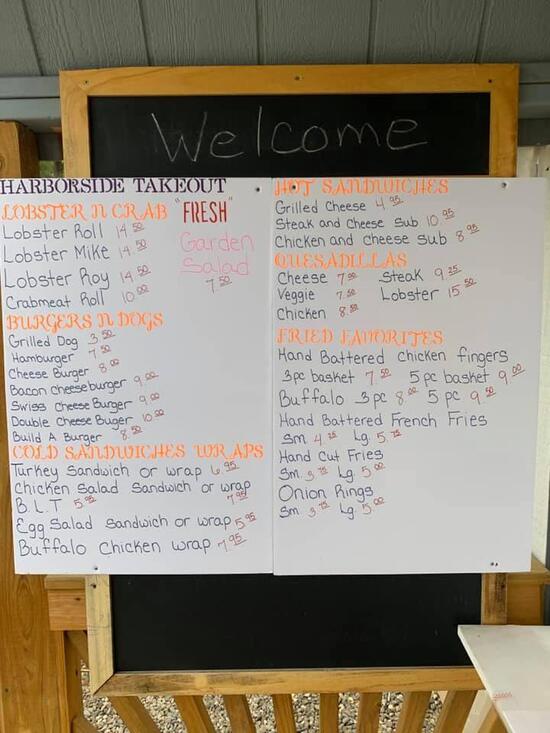 Welcome
HARBORSIDE TAKEOUT
LOBSTER N CRAB
Lobster Roll 14.50
Lobster Mike 14.50
Lobster Roy 14.50
Crabmeat Roll 10.00
"FRESH"
Garden
Salad
7.50
BURGERS N DOGS
Grilled Dog 3.50
Hamburger 7.50
Cheese Burger 8.00
Bacon Cheeseburger 9.00
Swiss Cheese Burger 9.00
Double Cheese Buger 10.00
Build A Burger 8.50
COLD SANDWICHES WRAPS
Turkey Sandwich or wrap 6.95
Chicken Salad Sandwich or wrap
7.95
B.L.T 5.95
Egg Salad Sandwich or wrap 5.95
Buffalo Chicken wrap 7.95
HOT SANDWICHES
Grilled Cheese 4.95
Steak and Cheese Sub 10.95
Chicken and cheese sub 8.95
QUESADILLAS
Cheese 7.00 Steak 9.25
Veggie 7.50 Lobster 15.50
Chicken 8.50
FRIED FAVORITES
Hand Battered chicken fingers
3pc basket 7.50 5pc basket 9.00
Buffalo 3pc 8.00 5pc 9.50
Hand Battered French Fries
Sm 4.75 Lg. 5.75
Hand Cut Fries
Sm. 3.75 Lg. 5.00
Onion Rings
Sm 3.75 Lg. 5.00